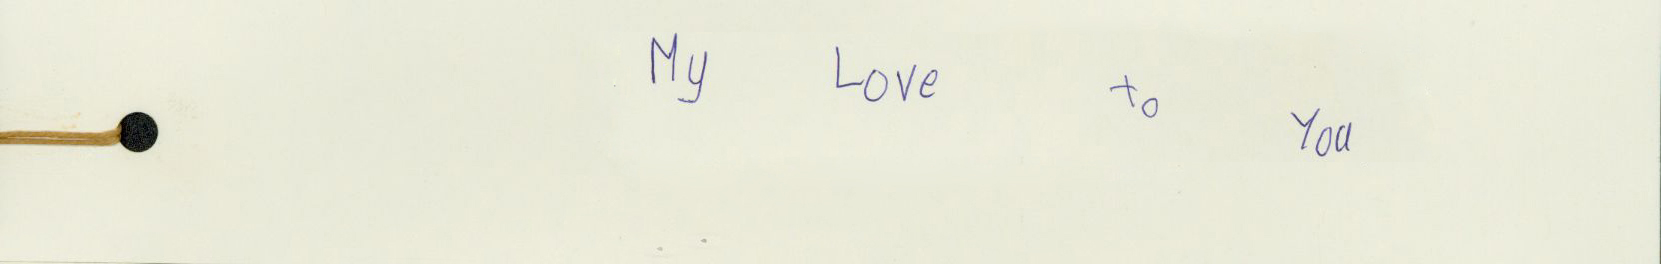 My Love to You